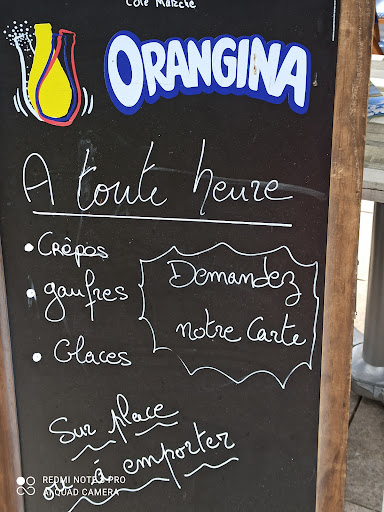 Côté Marché
ORANGINA
A toute heure
• Crêpes
• gaufres
• Glaces
Demandez
notre Carte
Sur place
ou à emporter
REDMI NOTE 8 PRO
AI QUAD CAMERA